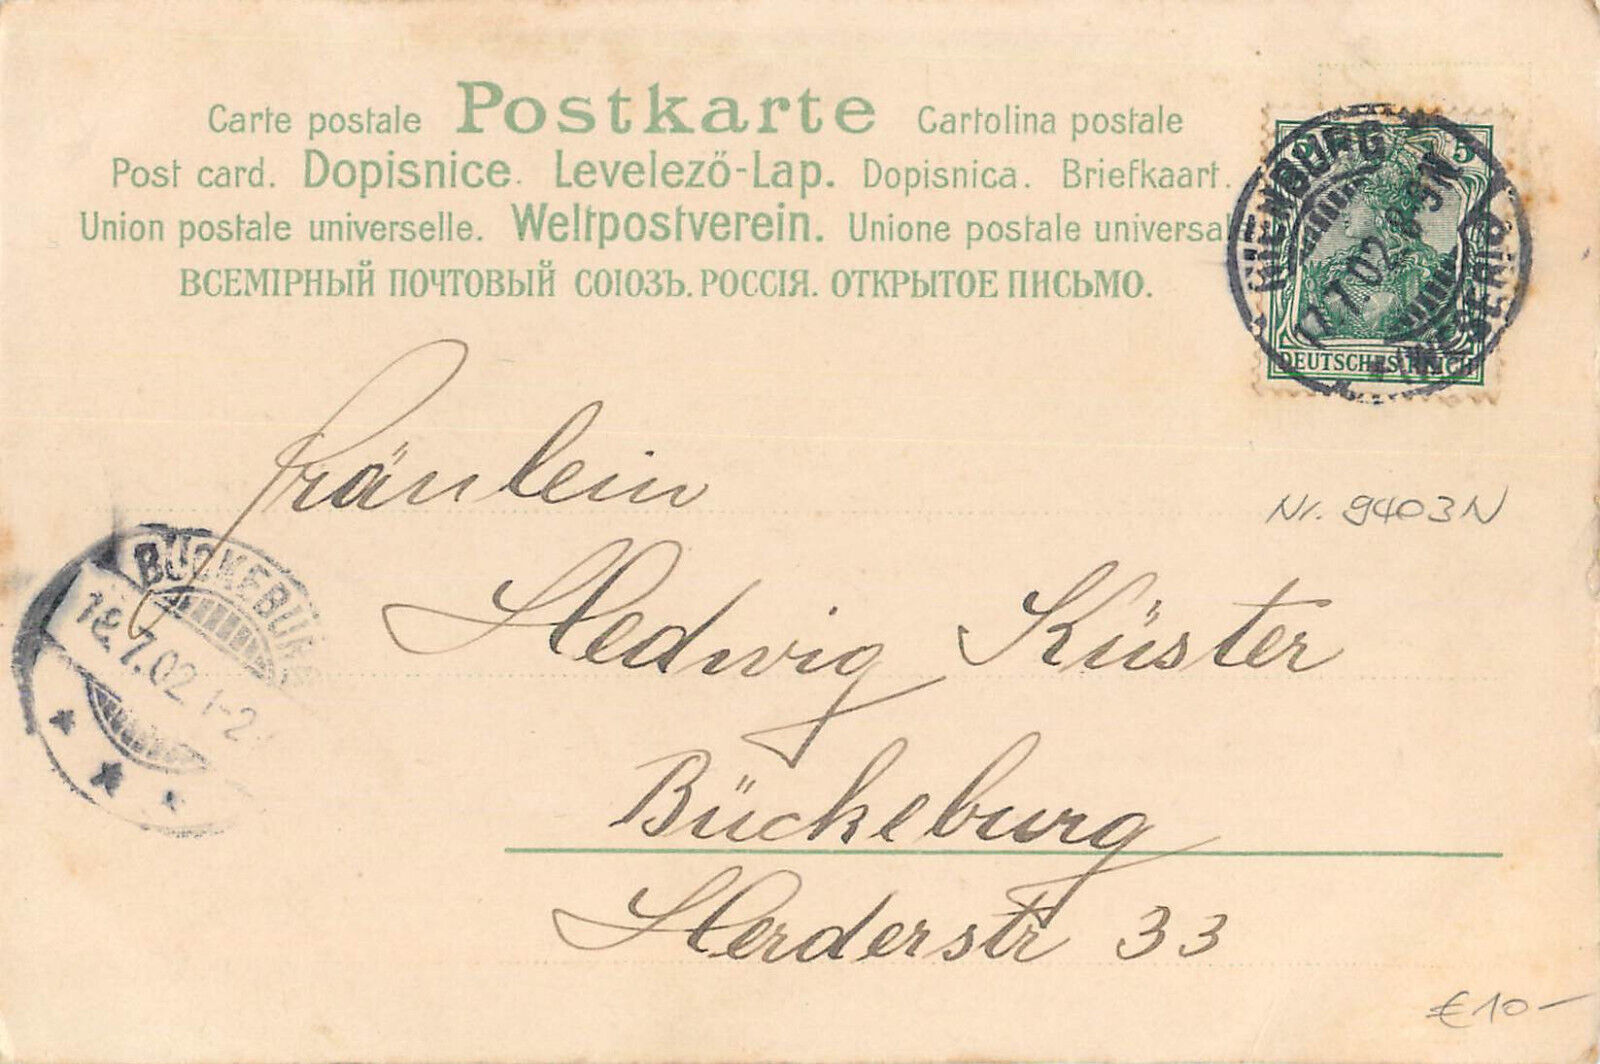 Carte postale Postkarte Cartolina postale
Post card. Dopisnice. Levelező-Lap. Dopisnica. Briefkaart.
Union postale universelle. Weltpostverein. Unione postale universal
ВСЕМІРНЫЙ ПОЧТОВЫЙ СОЮЗЪ. РОССІЯ. ОТКРЫТОЕ ПИСЬМО.
5
NIENBURG
17.7.02 8-9N
(WESER)
DEUTSCHES REICH
Fräulein
Nr. 9403N
Hedwig Küster
BÜCKEBURG
18.7.02 1-2
Bückeburg
Herderstr 33
€10-